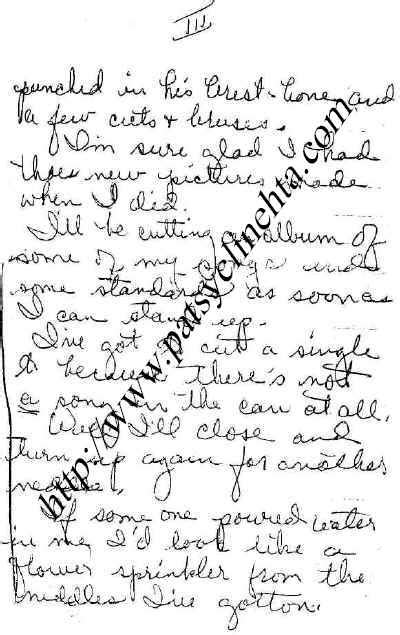 III
punched in his brest-bone and
a few cuts & bruses.
I'm sure glad I had
thoes new pictures made
when I did.
I'll be cutting an album of
some of my songs and
some standards as soon as
I can stand up.
I've got to cut a single
to because there's not
a song in the can at all.
Well I'll close and
turn up again for another
needle.
If some one poured water
in me, I'd look like a
flower sprinkler from the
niddles I've gotton.
http://www.patsyclinehta.com